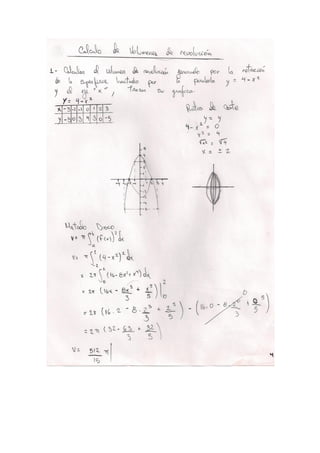 Calculo de Volumenes de revolución
1- Calculas el volumen de revolución generado por la rotación
de la superficie limitado por la parabola y = 4 - x²
y el eje "x", trazas su grafica.
y = 4 - x²
x -3 -2 -1 0 1 2 3
y -5 0 3 4 3 0 -5
Ptos de corte
y = y
4 - x² = 0
x² = 4
√x² = √4
x = ± 2
Metodo Disco
v = π ∫ᵇₐ (f(x))² dx
v = π ∫²₋₂ (4 - x²)² dx
= 2π ∫²₀ (16 - 8x² + x⁴) dx
= 2π (16x - 8x³/3 + x⁵/5) |²₀
= 2π (16 . 2 - 8 . 2³/3 + 2⁵/5) - (16 . 0 - 8 . 0³/3 + 0⁵/5) 0
= 2π (32 - 63/3 + 32/5)
V = 512/15 π
4